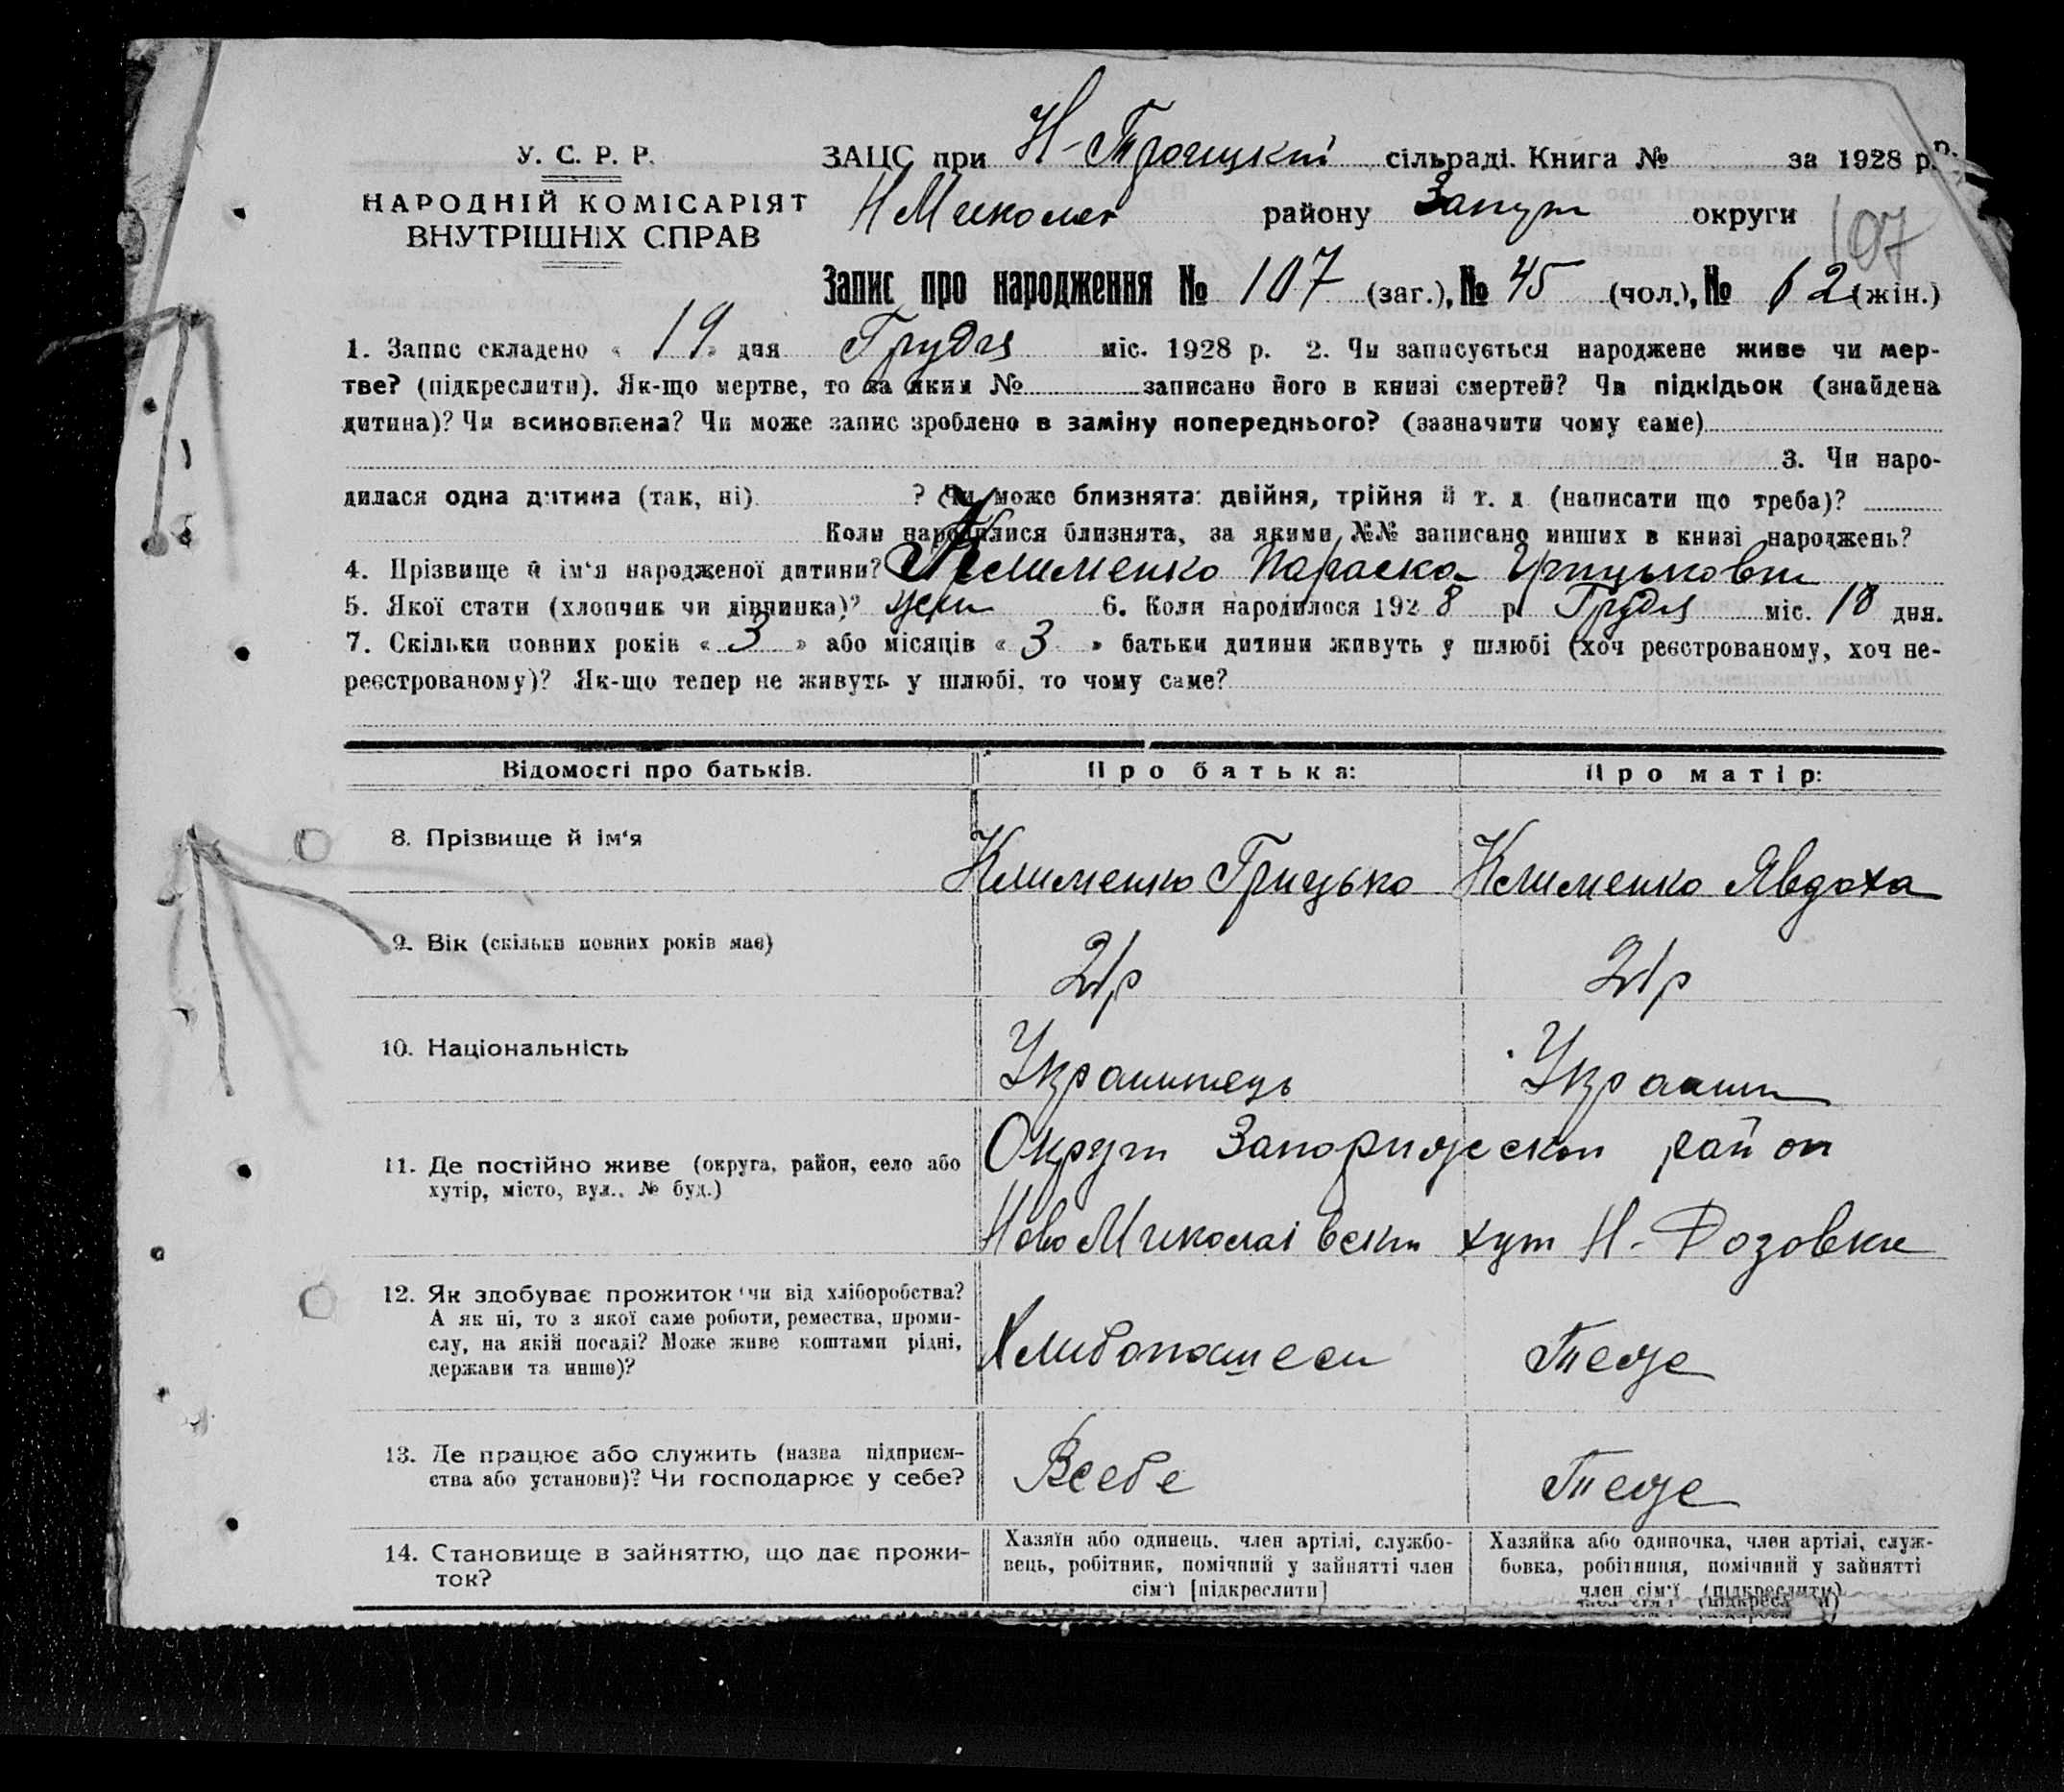 У. С. Р. Р.
НАРОДНІЙ КОМІСАРІЯТ
ВНУТРІШНІХ СПРАВ
ЗАЦС при Н-Троицкій сільраді. Книга № за 1928 р.
Н Миколає району Запут округи
107
Запис про народження № 107 (заг.), № 45 (чол.), № 62 (жін.)
1. Запис складено « 19 » дня Грудня міс. 1928 р. 2. Чи записується народжене живе чи мер-
тве? (підкреслити). Як-що мертве, то за яким № записано його в книзі смертей? Чи підкідьок (знайдена
дитина)? Чи всиновлена? Чи може запис зроблено в заміну попереднього? (зазначити чому саме)
3. Чи наро-
дилася одна дитина (так, ні) ? Чи може близнята: двійня, трійня й т. д (написати що треба)?
Коли народилися близнята, за якими №№ записано инших в книзі народжень?
4. Прізвище й ім'я народженої дитини? Клименко Параска Грицьковн
5. Якої стати (хлопчик чи дівчинка)? жен 6. Коли народилося 1928 р. Грудня міс. 18 дня.
7. Скільки повних років « 3 » або місяців « 3 » батьки дитини живуть у шлюбі (хоч реєстрованому, хоч не-
реєстрованому)? Як-що тепер не живуть у шлюбі, то чому саме?
Відомості про батьків. Про батька: Про матір:
8. Прізвище й ім'я Клименко Грицько Клименко Явдоха
9. Вік (скільки повних років має) 21р 21р
10. Національність Украинець Украин
11. Де постійно живе (округа, район, село або
хутір, місто, вул., № буд.)
Округи Запорижскои район
Ново Миколаівски хут Н-Розовки
12. Як здобуває прожиток чи від хліборобства?
А як ні, то з якої саме роботи, ремества, проми-
слу, на якій посаді? Може живе коштами рідні,
держави та инше)?
Хлибопашеси Теже
13. Де працює або служить (назва підприєм-
ства або установи)? Чи господарює у себе?
Всебе Теже
14. Становище в зайняттю, що дає прожи-
ток?
Хазяїн або одинець, член артілі, службо-
вець, робітник, помічний у зайнятті член
сім'ї [підкреслити]
Хазяйка або одиночка, член артілі, служ-
бовка, робітниця, помічний у зайнятті
член сім'ї (підкреслити)